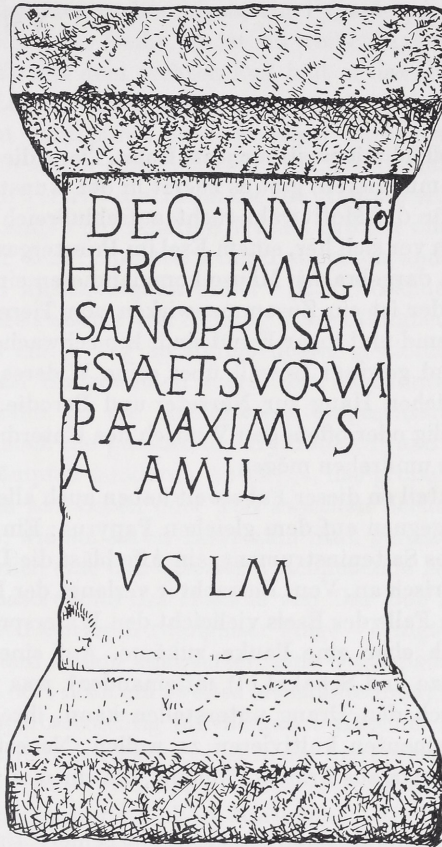 DEO·INVICTO
HERCVLI·MAGV
SANOPROSALV
ESVAETSVORVM
PAEMAXIMVS
A AMIL
VSLM